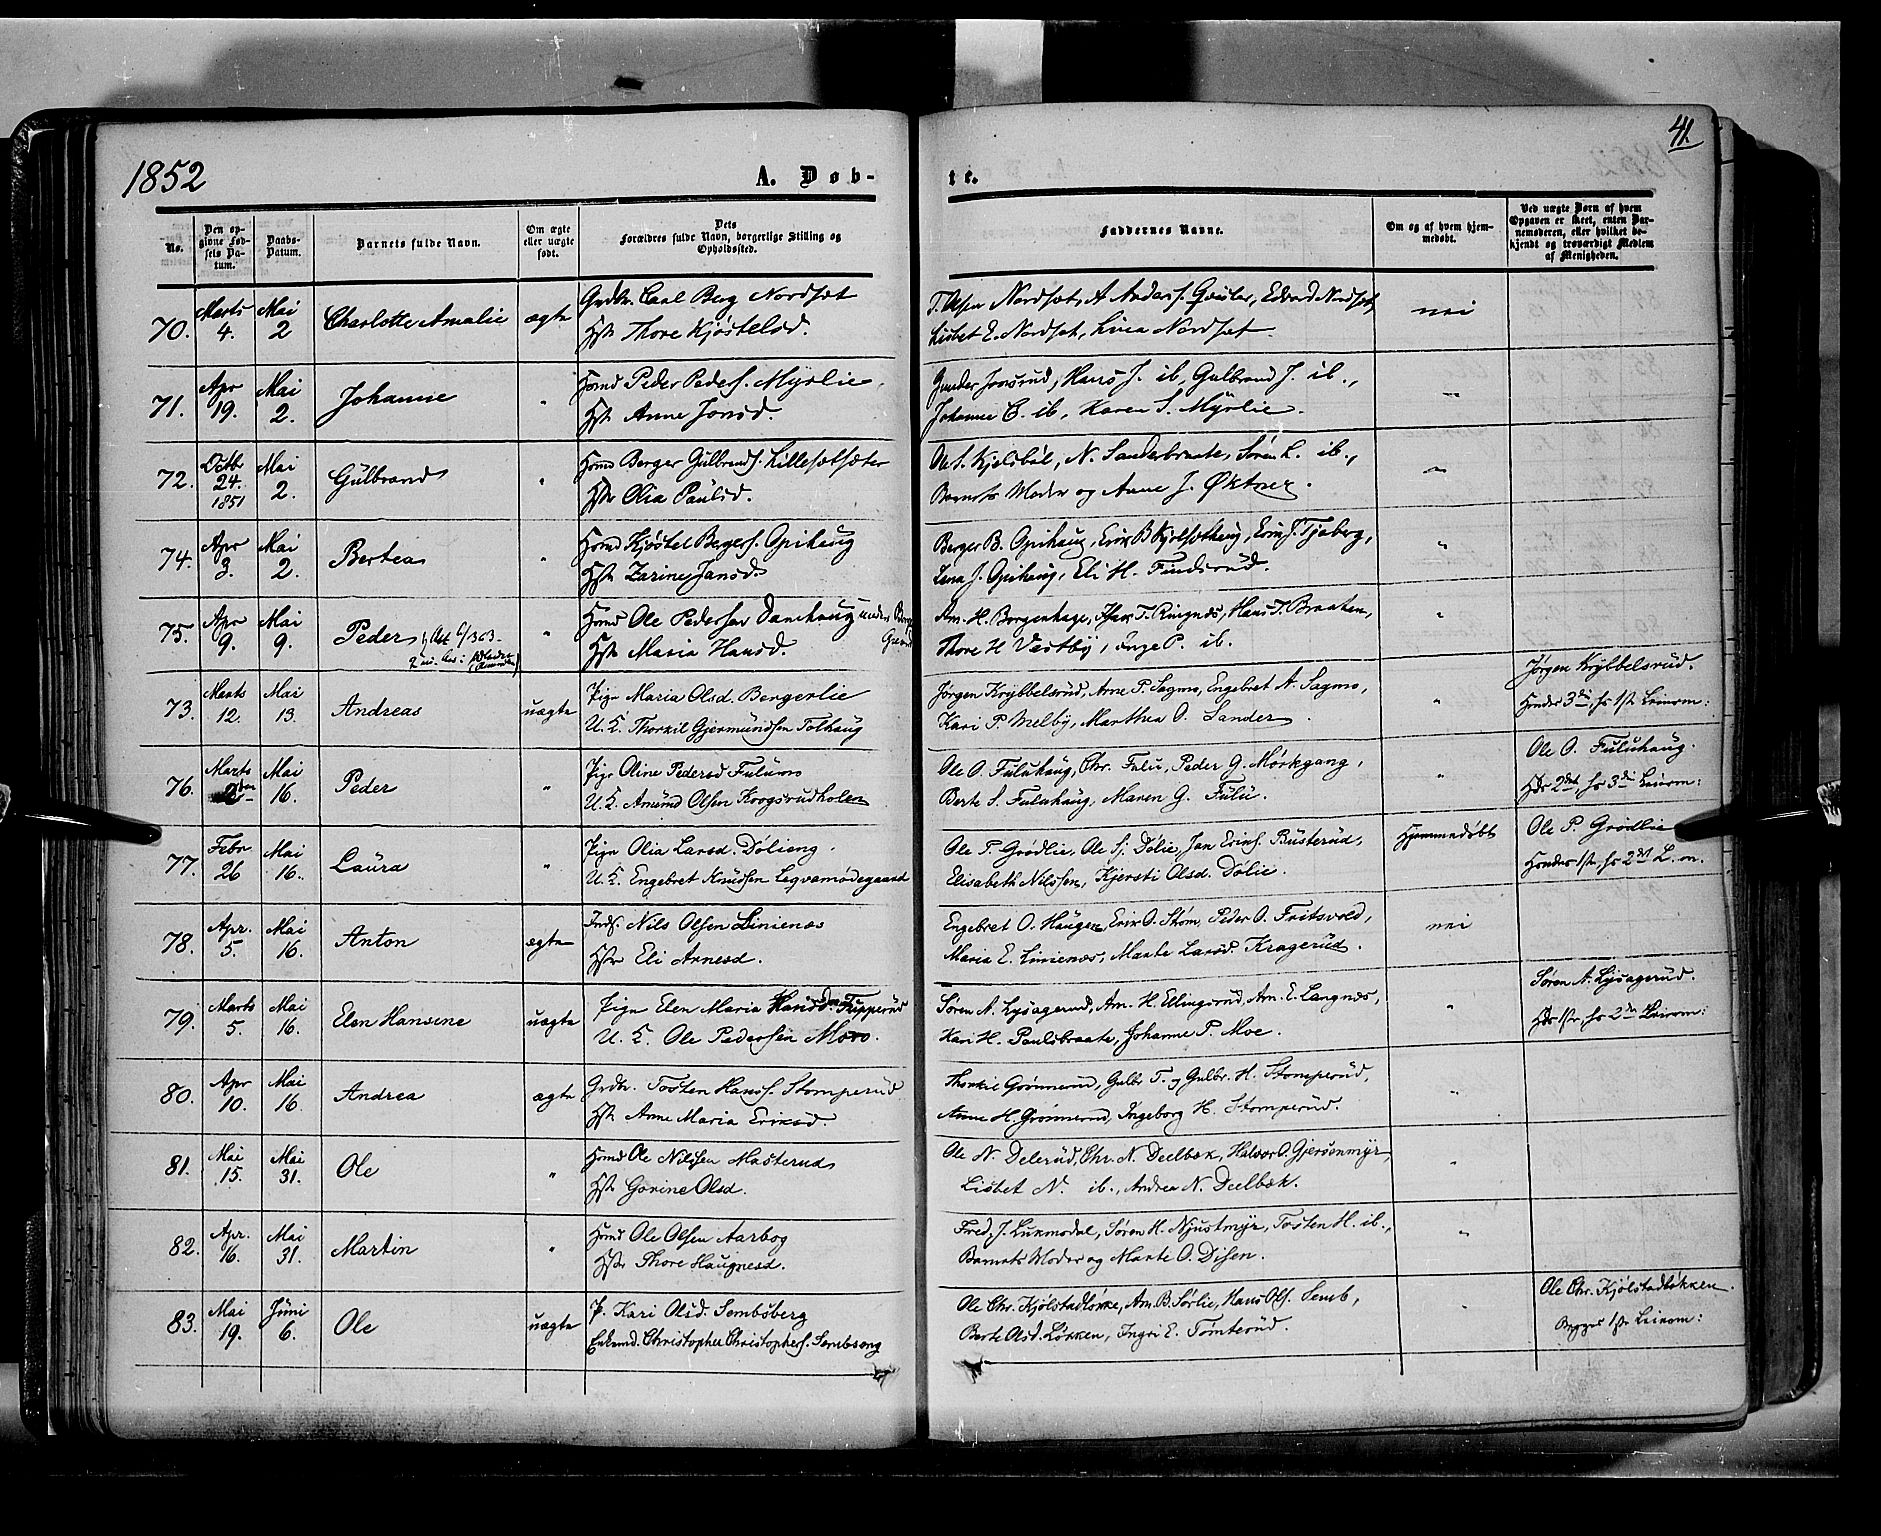 1852
A. Døb-
te.
41.
No.
Den op-
givne Fød-
sels Da-
tum.
Daabs-
Datum.
Barnets fulde Navn.
Om ægte
eller uægte
født.
Dets
Forældres fulde Navn, borgerlige Stilling og
Opholdssted.
Faddernes Navne.
Om og af hvem hjem-
medøbt.
Ved uægte Børn af hvem
Opgaven er skeet, enten Bar-
nemoderen, eller hvilket be-
kjendt og troværdigt Medlem
af Menigheden.
70. Marts 4. Mai 2 Charlotte Amalie ægte
Grdbr. Carl Berg Nordsæt
Hst. Thore Kjøstelsd.
T. Olsen Nordsæt, A. Anders. Edvard Nordsæt,
Lisbet E. Nordsæt, Lovea Nordsæt
nei
71. Apr 19. Mai 2. Johanne "
Hsmd Peder Peders. Myrlie.
Hst. Anne Jonsd.
Gunder Jonsrud, Hans J. ib, Gulbrand J. ib.,
Johanne C. ib, Karen S. Myrlie.
"
72. Octbr 24. 1851 Mai 2. Gulbrand "
Hsmd Berger Gulbrands. Lillesætsæter
Hst. Olia Paulsd.
Ole S. Kjelsbøl, N. Sanderbraate, Søren L. ib.,
Barnets Moder og Anne J. Øktner.
"
74. Apr 3. Mai 2. Bertea "
Hsmd Kjøstel Bergers. Opihaug
Hst. Zarine Jansd.
Berger B. Opihaug, Erik B. Kjølsæthaug, Erik J. Tjaberg,
Lena J. Opihaug, Eli H. Findsrud.
"
75. Apr 9. Mai 9. Peder "
Hsmd Ole Pedersen Damhaug under
Hst. Maria Hansd.
Am. H. Borgenhage, T. Ringnæs, Hans T. Braaten,
Thore H Vestby, Inge P. ib.
"
73. Marts 12. Mai 13. Andreas uægte
Pige Maria Olsd. Bergerlie
U. K. Thorkil Gjermundsen Tolhaug
Jørgen Krybbelsrud, Arne P. Sagmo, Engebret A. Sagmo,
Kari P. Melby, Marthea O. Sander.
"
Jørgen Krybbelsrud.
Hendes 3die, hs 1ste Leierm:
76. Marts Mai 16. Peder "
Pige Oline Pedersd Fulums
U. K. Amund Olsen Krogsrudholen
Ole O. Fuluhaug, Chr. Fulu, Peder G. Mørkgang,
Berte S. Fuluhaug, Maren G. Fulu.
"
Ole O. Fuluhaug.
Hds 2det, hs 3die Leierm:
77. Febr 26 Mai 16. Laura "
Pige Olia Larsd. Dølieng.
U. K. Engebret Knudsen Legvamødegaard
Ole P. Grødlie, Ole Sj. Dølie, Jan Eriks. Busterud,
Elisabeth Nilssen, Kjersti Olsd. Dølie.
Hjemmedøbt
Ole P. Grødlie
Hendes 1ste, hs 2det L. m.
78. Apr. 5. Mai 16. Anton ægte
Nils Olsen Linienæs
Hst Eli Arnesd.
Engebret O. Haugen, Erik O. Strøm, Peder O. Fritsvold,
Maria E. Linienæs, Marte Larsd. Kragerud.
nei
79. Marts 5. Mai 16. Elen Hansine uægte
Pige Elen Maria Hansd. Tripperud
U. K. Ole Pedersen Moro.
Søren A. Lysagerud, Am. H. Ellingsrud, Am. E. Langnæs,
Kari H. Paulsbraate, Johanne P. Moe.
"
Søren A. Lysagerud.
Hds 1ste, hs 2det Leierm:
80. Apr 10. Mai 16. Andrea ægte
Grdbr. Tosten Hanss. Stomperud
Hst. Anne Maria Eriksd.
Thorkil Grønnerud, Gulbr T. og Gulbr. H. Stomperud,
Anne H. Grønnerud, Ingeborg H. Stomperud.
"
81. Mai 15. Mai 31. Ole "
Hsmd Ole Nilssen Masterud
Hst. Gorine Olsd.
Ole N. Delerud, Chr. N. Deelbæk, Halvor O. Gjersønmyr,
Lisbet N. ib., Andrea N. Deelbæk.
"
82. Apr. 16. Mai 31. Martin "
Hsmd Ole Olsen Aarbog
Hst Thore Haugnesd.
Fred. J. Lukmodal, Søren H. Njustmyr, Tosten H. ib.,
Barnets Moder og Marte O. Disen.
"
83. Mai 19. Juni 6. Ole uægte
P. Kari Olsd. Sembsberg
Enkemd. Christopher Christophers. Sembseng
Ole Chr. Kjølstadløkke, Am. B. Sørlie, Hans Ols. Semb,
Berte Olsd. Løkken, Ingri E. Tømterud.
"
Ole Chr. Kjølstadløkken.
Begges 1ste Leierm: